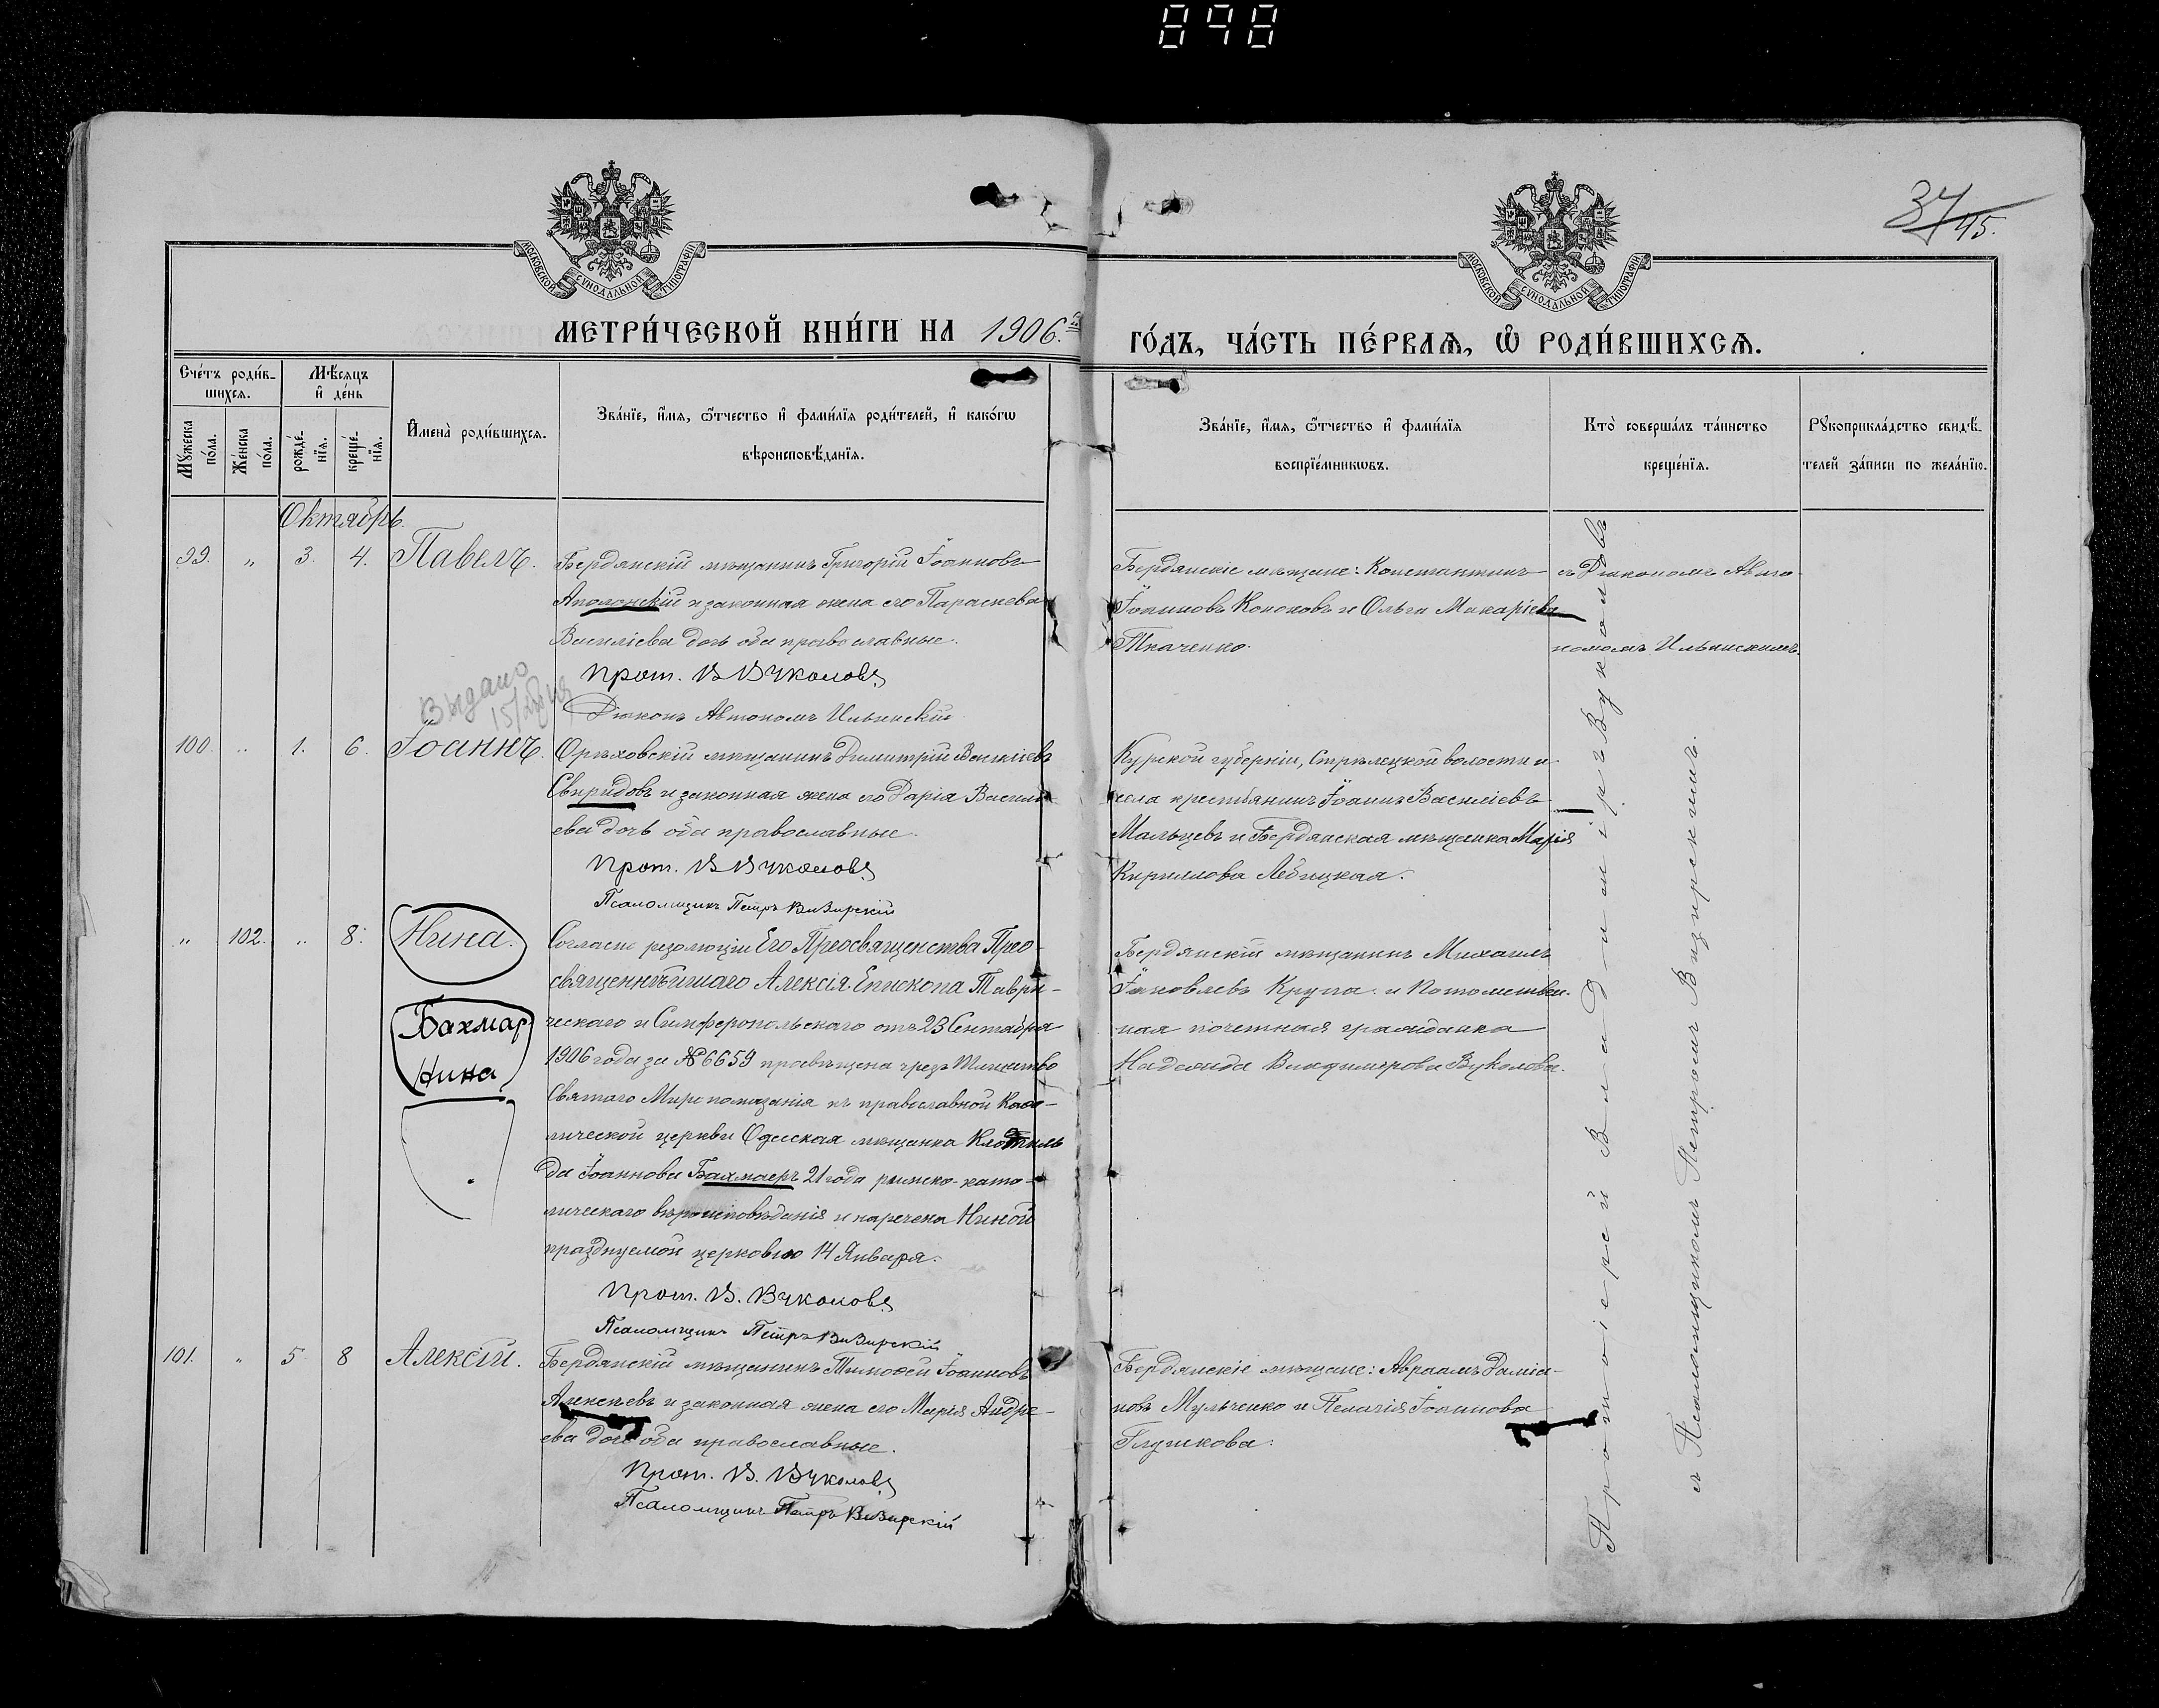 898
37/45.
МОСКОВСКОЙ СѴНОДАЛЬНОЙ ТИПОГРАФІИ
МОСКОВСКОЙ СѴНОДАЛЬНОЙ ТИПОГРАФІИ
МЕТРИ́ЧЕСКОЙ КНИ́ГИ НА 1906.
ГО́ДЪ, ЧА́СТЬ ПЕ́РВАѦ, Ѿ РОДИ́ВШИХСѦ.
Сче́тъ роди́в-
шихсѧ.
Мѣсѧцъ
и҆ де́нь
Мꙋ́жеска
по́ла.
Же́нска
по́ла.
рожде́-
нїѧ.
креще́-
нїѧ.
И҆мена̀ роди́вшихсѧ.
Зва́нїе, и҆́мѧ, ѻ҆́тчество и҆ фами́лїѧ роди́телей, и҆ како́гѡ
вѣроисповѣ́данїѧ.
Зва́нїе, и҆́мѧ, ѻ҆́тчество и҆ фами́лїѧ
воспрїе́мникѡвъ.
Кто̀ соверша́лъ та́инство
креще́нїѧ.
Рꙋкоприкла́дство свидѣ́-
телей за́писи по жела́нїю.
Октябрь.
99. „ 3. 4. Павелъ.
Бердянскій мѣщанинъ Григорій Іоанновъ
Аполонскій и законная жена его Параскева
Василіева дочь оба православные.
Прот. В Вуколовъ
Діаконъ Автономъ Ильинскій
Бердянскіе мѣщане: Константинъ
Іоанновъ Кононовъ и Ольга Макаріева
Ткаченко.
съ Діакономъ Авто-
номомъ Ильинскимъ.
Выдано
100. „ 1. 6. Іоаннъ.
Орѣховскій мѣщанинъ Димитрій Василіевъ
Свиридовъ и законная жена его Дарія Василі-
ева дочь оба православные.
Прот. В Вуколовъ
Псаломщикъ Петръ Визирскій
Курской губерніи, Стрѣлецкой волости и
села крестьянинъ Іоаннъ Василіевъ
Мальцевъ и Бердянская мѣщанка Марія
Кириллова Лебицкая.
„ 102. „ 8. Нина.
Бахмар
Нина
Согласно резолюціи Его Преосвященства Прео-
священнѣйшаго Алексія Епископа Таври-
ческаго и Симферопольскаго отъ 23 Сентября
1906 года за № 6659 просвѣщена чрезъ Таинство
Святаго Миропомазанія къ православной Каѳо-
лической церкви Одесская мѣщанка Клотиль
да Іоаннова Бахмаеръ 21 года римско-като-
лическаго вѣроисповѣданія и наречена Ниной
празднуемой церковію 14 Января.
Прот. В. Вуколовъ
Псаломщикъ Петръ Визирскій
Бердянскій мѣщанинъ Михаилъ
Іаковлевъ Крупа и Потомствен-
ная почетная гражданка
Надежда Владимірова Вуколова.
101. „ 5 8 Алексій.
Бердянскій мѣщанинъ Тимоѳей Іоанновъ
Алексѣевъ и законная жена его Марія Андре-
ева дочь оба православные.
Прот. В. Вуколовъ
Псаломщикъ Петръ Визирскій
Бердянскіе мѣщане: Авраамъ Даміа-
новъ Мульченко и Пелагія Іоаннова
Глушкова.
Протоіерей Владиміръ Вуколовъ
съ Псаломщикомъ Петромъ Визирскимъ.